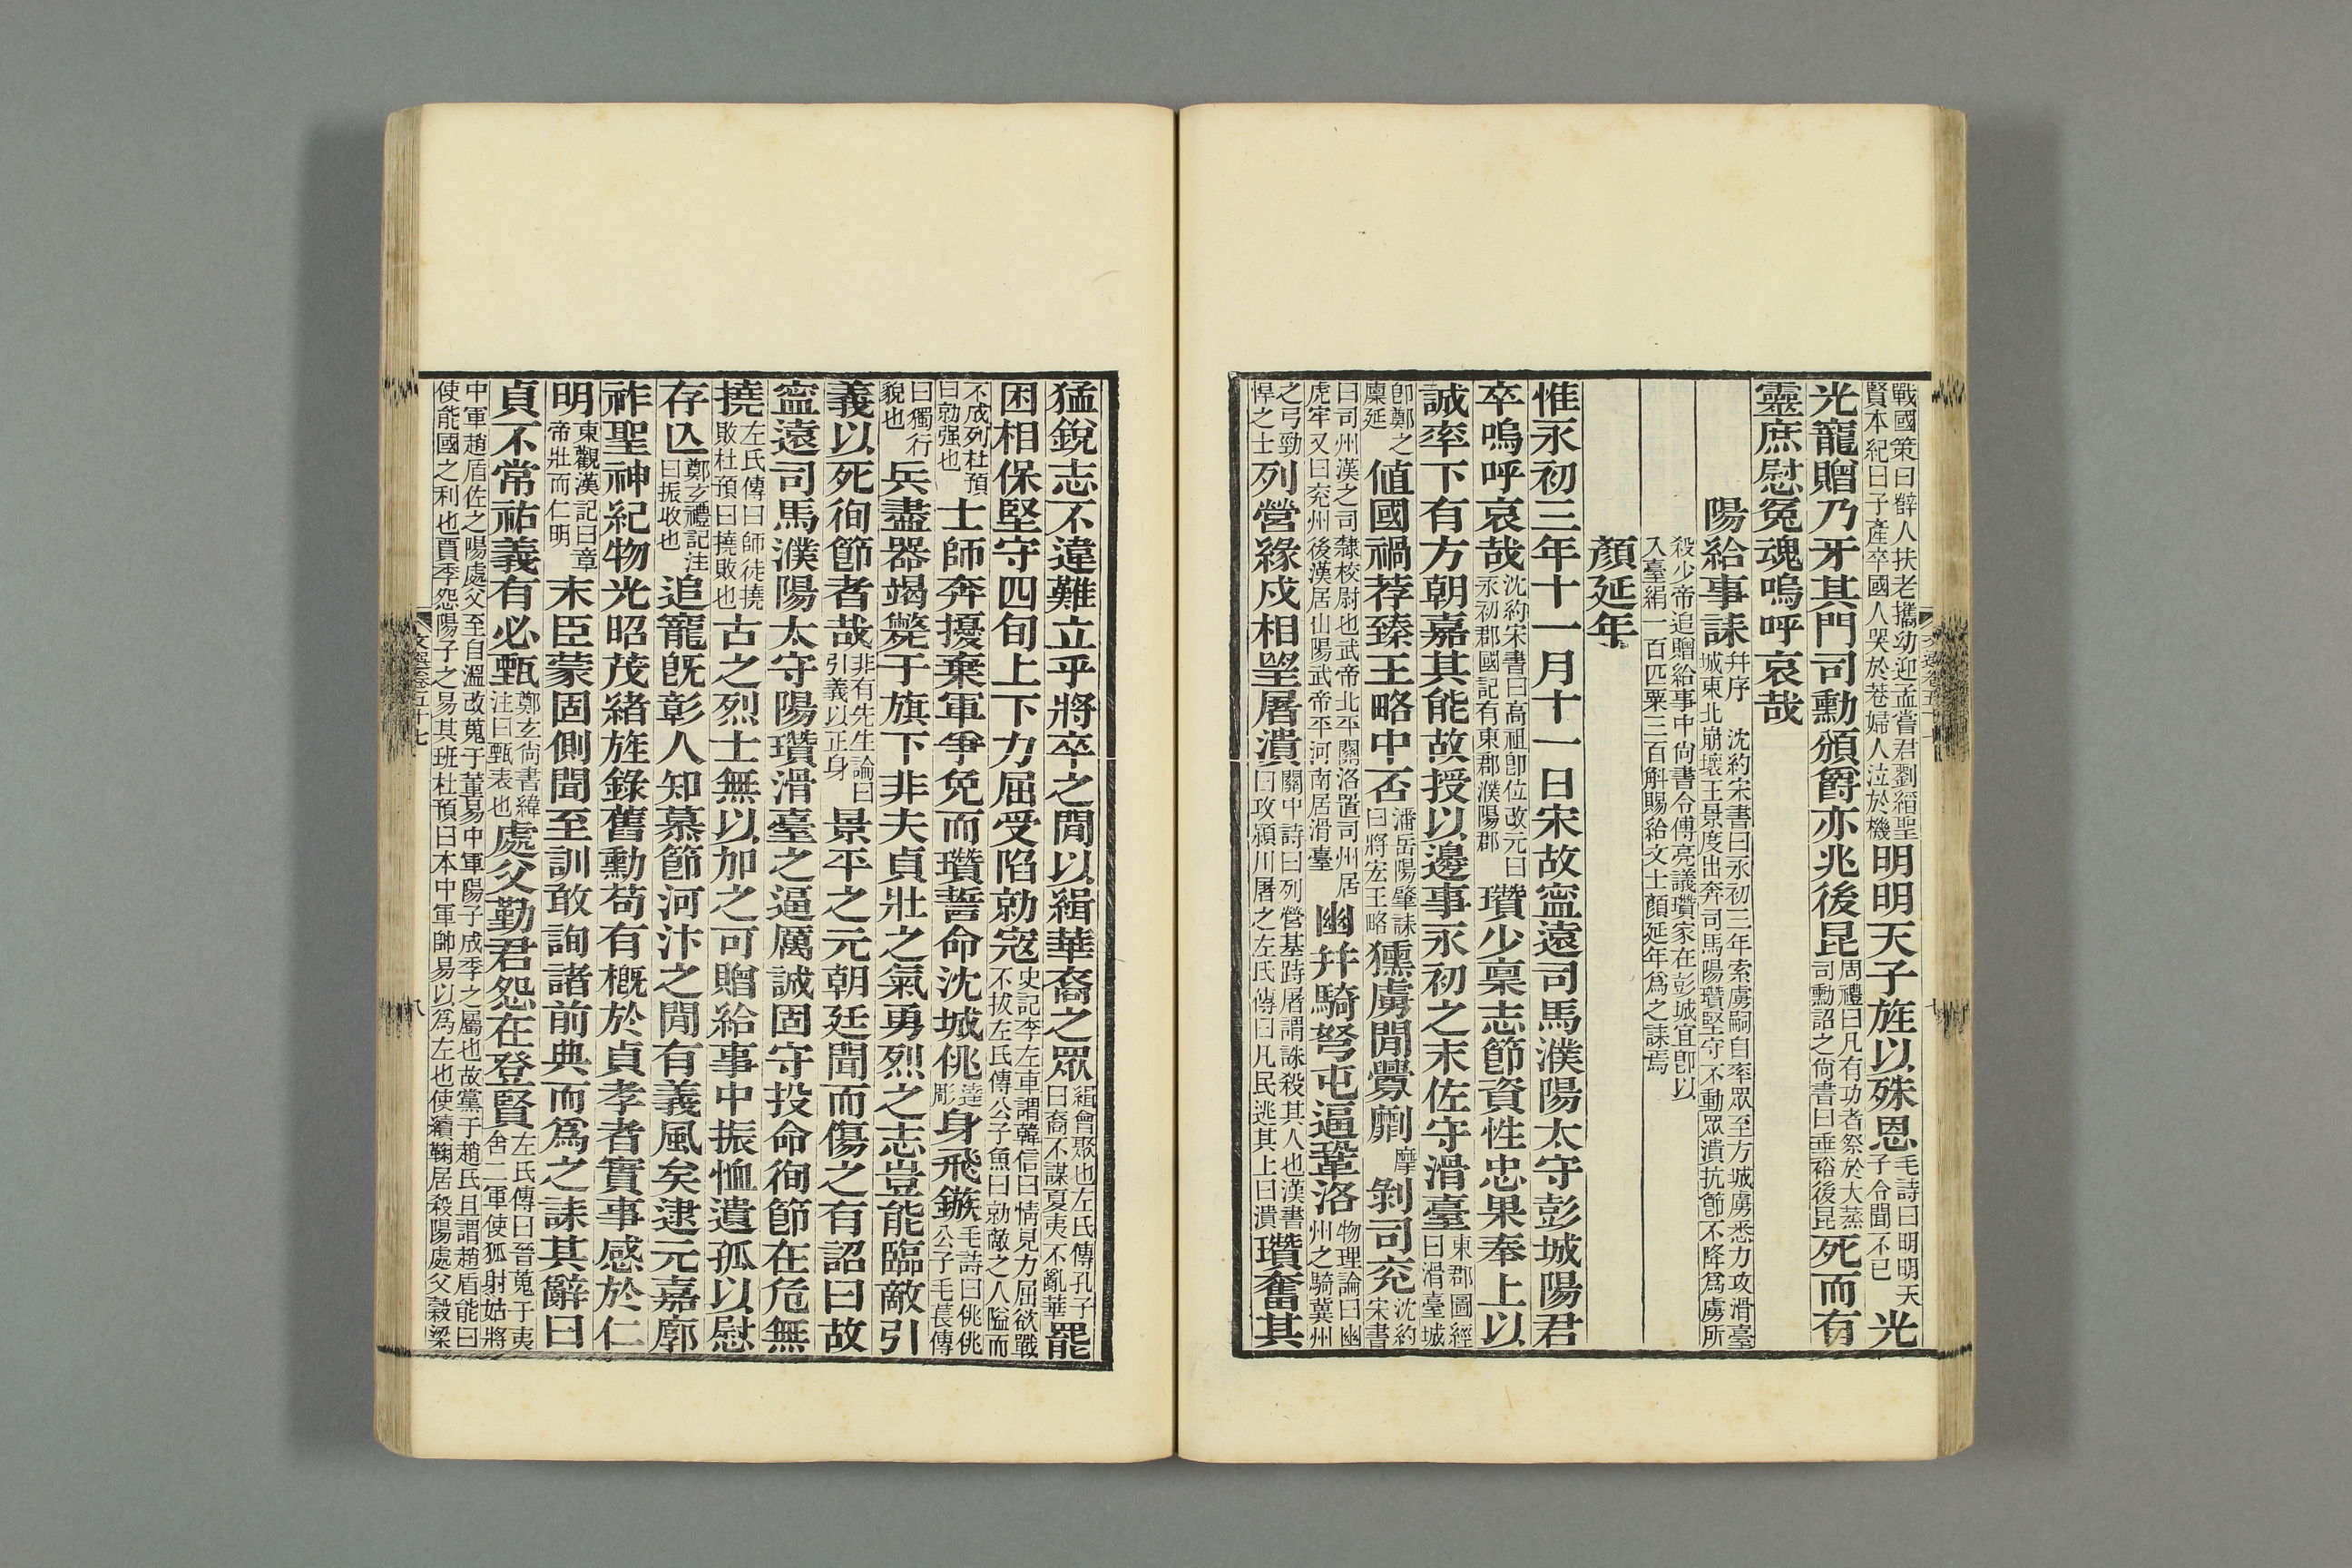 戰國策曰薛人扶老攜幼迎孟嘗君劉縚聖賢本紀曰子產卒國人哭於巷婦人泣於機明明天子旌以殊恩毛詩曰明明天子令聞不已光
光寵贈乃牙其門司勳頒爵亦兆後昆周禮曰凡有功者祭於大蒸司勳詔之尙書曰垂裕後昆死而有
靈庶慰冤魂嗚呼哀哉
陽給事誄幷序　沈約宋書曰永初三年索虜嗣自率眾至方城虜悉力攻滑臺城東北崩壞王景度出奔司馬陽瓚堅守不動眾潰抗節不降爲虜所
殺少帝追贈給事中尙書令傅亮議瓚家在彭城宜卽以入臺絹一百匹粟三百斛賜給文士顏延年爲之誄焉
顏延年
惟永初三年十一月十一日宋故寍遠司馬濮陽太守彭城陽君
卒嗚呼哀哉沈約宋書曰高祖卽位改元曰永初郡國記有東郡濮陽郡瓚少稟志節資性忠果奉上以
誠率下有方朝嘉其能故授以邊事永初之末佐守滑臺東郡圖經曰滑臺城
卽鄭之廩延值國禍荐臻王略中否潘岳陽肇誄曰將宏王略獯虜閒釁劘摩剝司兗沈約宋書
曰司州漢之司隸校尉也武帝北平關洛置司州居虎牢又曰兗州後漢居山陽武帝平河南居滑臺幽幷騎弩屯逼鞏洛物理論曰幽州之騎冀州
之弓勁悍之士列營緣戍相望屠潰關中詩曰列營基跱屠謂誅殺其人也漢書曰攻潁川屠之左氏傳曰凡民逃其上曰潰瓚奮其
猛銳志不違難立乎將卒之閒以緝華裔之眾緝會聚也左氏傳孔子曰裔不謀夏夷不亂華罷
困相保堅守四旬上下力屈受陷勍寇史記李左車謂韓信曰情見力屈欲戰不拔左氏傳公子魚曰勍敵之人隘而
不成列杜預曰勍强也士師奔擾棄軍爭免而瓚誓命沈城佻達彫身飛鏃毛詩曰佻佻公子毛萇傳
曰獨行貌也兵盡器竭斃于旗下非夫貞壯之氣勇烈之志豈能臨敵引
義以死徇節者哉非有先生論曰引義以正身景平之元朝廷聞而傷之有詔曰故
寍遠司馬濮陽太守陽瓚滑臺之逼厲誠固守投命徇節在危無
撓左氏傳曰師徒撓敗杜預曰撓敗也古之烈士無以加之可贈給事中振恤遺孤以慰
存亾鄭玄禮記注曰振收也追寵旣彰人知慕節河汴之閒有義風矣逮元嘉廓
祚聖神紀物光昭茂緒旌錄舊勳苟有槪於貞孝者實事感於仁
明東觀漢記曰章帝壯而仁明末臣蒙固側聞至訓敢詢諸前典而爲之誄其辭曰
貞不常祐義有必甄鄭玄尙書緯注曰甄表也處父勤君怨在登賢左氏傳曰晉蒐于夷舍二軍使狐射姑將
中軍趙盾佐之陽處父至自溫改蒐于董易中軍陽子成季之屬也故黨于趙氏且謂趙盾能曰使能國之利也賈季怨陽子之易其班杜預曰本中軍帥易以爲左也使續鞫居殺陽處父穀梁
文選卷五十七
八